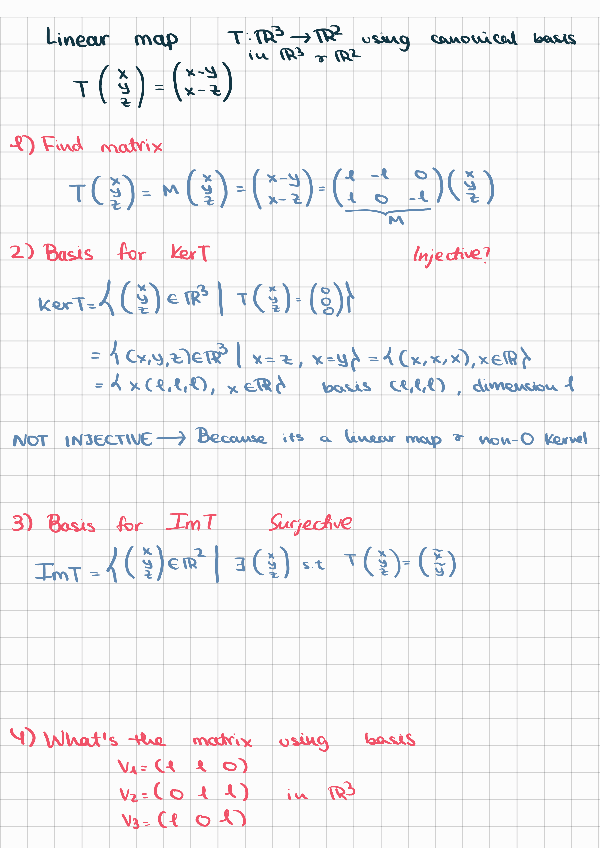 Linear map T: ℝ³ → ℝ² using canonical basis
in ℝ³ & ℝ²
T (x y z) = (x-y x-z)
1) Find matrix
T (x y z) = M (x y z) = (x-y x-z) = (1 -1 0 1 0 -1) (x y z)
M
2) Basis for KerT Injective?
KerT = { (x y z) ∈ ℝ³ | T (x y z) = (0 0 0) }
= { (x,y,z) ∈ ℝ³ | x=z, x=y } = { (x,x,x), x∈ℝ }
= { x(1,1,1), x∈ℝ } basis (1,1,1), dimension 1
NOT INJECTIVE → Because its a linear map & non-0 kernel
3) Basis for ImT Surjective
ImT = { (x y z) ∈ ℝ² | ∃ (x y z) s.t T (x y z) = (x̃ ỹ)
4) What's the matrix using basis
V1 = (1 1 0)
V2 = (0 1 1) in ℝ³
V3 = (1 0 1)